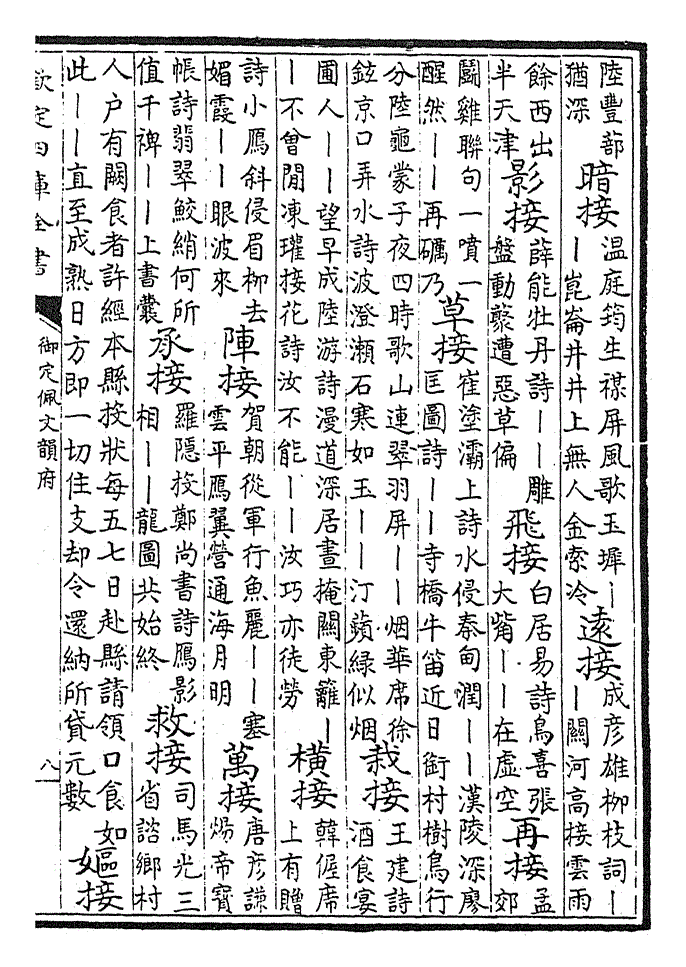 陸豐蔀猶深 暗接 温庭筠生禖屏風歌玉墀丨丨崑崙井井上無人金索冷 遠接 成彦雄柳枝詞丨丨關河高接雲雨
餘西出半天津 影接 薛能牡丹詩丨丨雕盤動聚遭惡草偏 飛接 白居易詩鳥喜張大觜丨丨在虚空 再接 孟郊
鬬雞聯句一噴一醒然丨丨再礪乃 草接 崔塗灞上詩水侵秦甸濶丨丨漢陵深廖匡圖詩丨丨寺橋牛笛近日銜村樹鳥行
分陸龜蒙子夜四時歌山連翠羽屏丨丨烟華席徐鉉京口弄水詩波澄瀨石寒如玉丨丨汀蘋緑似烟 栽接 王建詩酒食宴
圃人丨丨望早成陸游詩漫道深居晝掩關東籬丨丨不曾閒凍瓘接花詩汝不能丨丨汝巧亦徒勞 横接 韓偓席上有贈
詩小鴈斜侵眉柳去媚霞丨丨眼波來 陣接 賀朝從軍行魚麗丨丨塞雲平鴈翼營通海月明 萬接 唐彦謙煬帝寶
帳詩翡翠鮫綃何所值千裨丨丨上書囊 承接 羅隠投鄭尚書詩鴈影相丨丨龍圖共始終 救接 司馬光三省諮鄉村
人户有闕食者許經本縣投狀每五七日赴縣請領口食如此丨丨直至成熟日方即一切住支却令還納所貸元數 嫗接
欽定四庫全書 御定佩文韻府 八